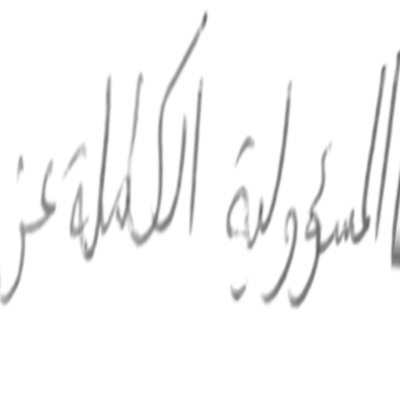 المسؤولية الكاملة عن